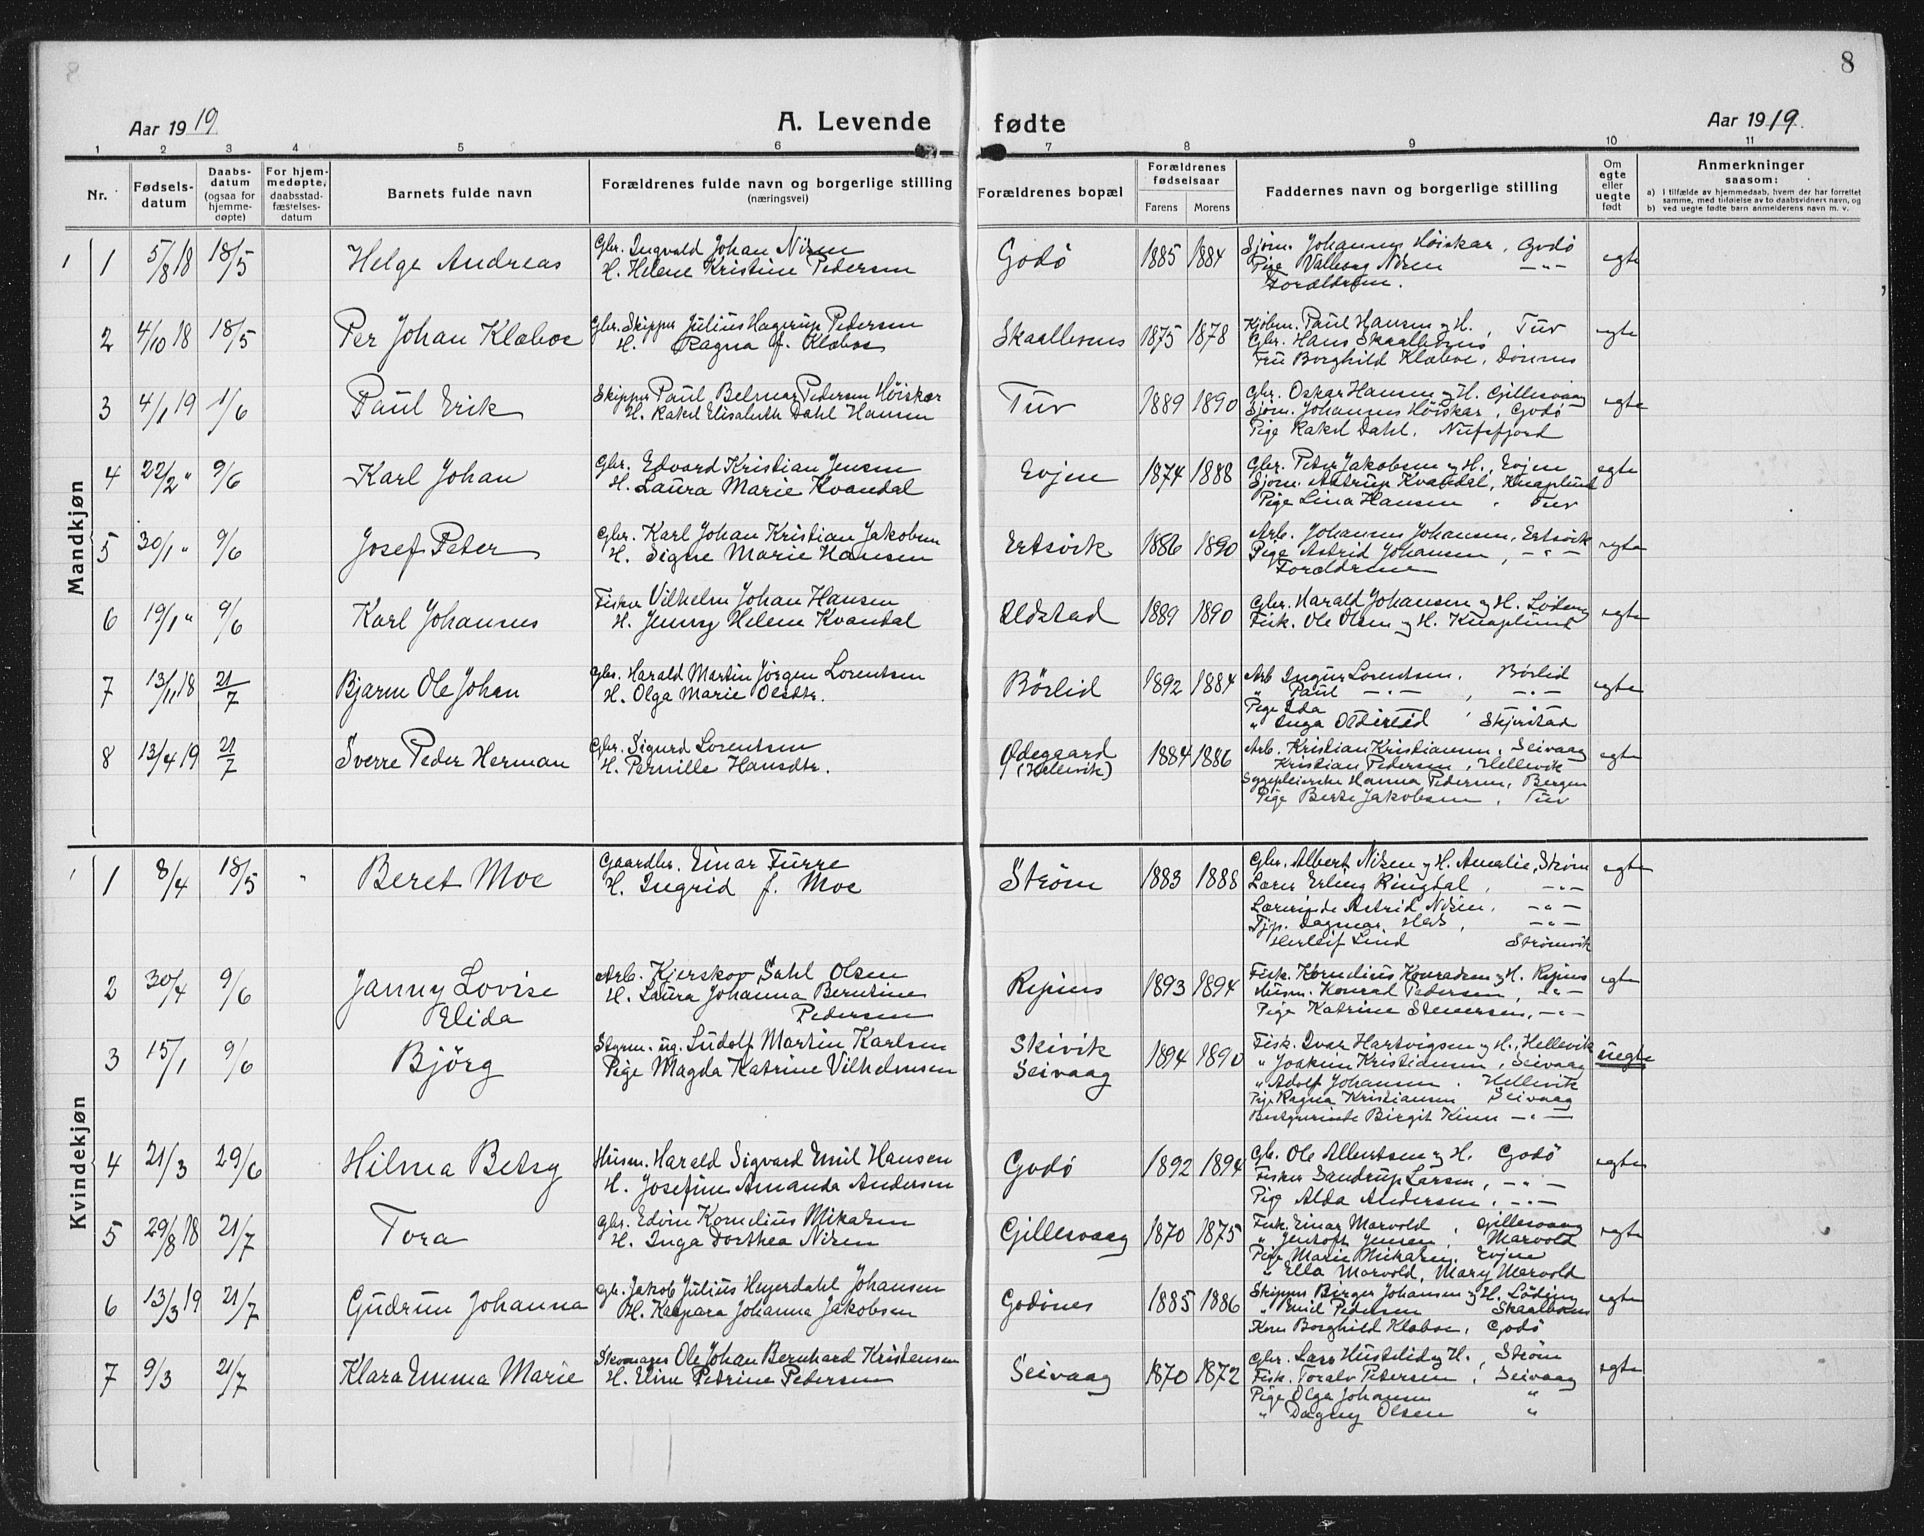 8
Aar 1919
A. Levende fødte
Aar 1919.
1 2 3 4 5 6 7 8 9 10 11
Nr.
Fødsels-
datum
Daabs-
datum
(ogsaa for
hjemme-
døpte)
For hjem-
medøpte,
daabsstad-
fæstelses-
datum
Barnets fulde navn
Forældrenes fulde navn og borgerlige stilling
(næringsvei)
Forældrenes bopæl
Forældrenes
fødselsaar
Farens Morens
Faddernes navn og borgerlige stilling
Om
egte
eller
uegte
født
Anmerkninger
saasom:
a) I tilfælde av hjemmedaab, hvem der har forrettet
samme, med tilføielse av to daabsvidners navn, og
b) ved uegte fødte barn anmelderens navn m. v.
Mandkjøn
1 1 5/8 18 18/5 Helge Andreas
Gbr. Ingvald Johan Nisen
H. Helene Kristine Pedersen
Godø 1885 1884
Sjøm. Johannes Høiskar, Godø
Pige Valborg Nisen -"-
Forældrene.
egte
2 4/10 18 18/5 Per Johan Klæboe
Gbr. Skipper Julius Hagerup Pedersen
H. Ragna f. Klæboe
Skaalbones 1875 1878
Kjøbm. Paul Hansen og H., Tuv
Gbr. Hans Skaalbones
Fru Borghild Klæboe, Dønnes
egte
3 4/1 19 1/6 Paul Erik
Skipper Paul Belmar Pedersen Høiskar
H. Rakel Elisabeth Dahl Hansen
Tuv 1889 1890
Gbr. Oskar Hansen og H. Gillesvaag
Sjøm. Johannes Høiskar, Godø
Pige Rakel Dahl, Nufsfjord
egte
4 22/2 " 9/6 Karl Johan
Gbr. Edvard Kristian Jensen
H. Laura Marie Kvandal
Evjen 1874 1888
Gbr. Peter Jakobsen og H., Evjen
Sjøm. Astrup Kvandal, Knaplund
Pige Lina Hansen, Tuv
egte
5 30/1 " 9/6 Josef Peter
Gbr. Karl Johan Kristian Jakobsen
H. Signe Marie Hansen
Ertsvik 1886 1890
Arb. Johannes Johansen, Ertsvik
Pige Astrid Johansen, -"-
Forældrene
egte
6 19/1 " 9/6 Karl Johannes
Fisker Vilhelm Johan Hansen
H. Jenny Helene Kvandal
Oldstad 1889 1890
Gbr. Harald Johansen og H. Løding
Fisk. Ole Olsen og H. Knaplund
egte
7 13/11 18 21/7 Bjarne Ole Johan
Gbr. Harald Martin Jørgen Lorentsen
H. Olga Marie Olsdtr.
Børlid 1892 1884
Arb Ingur Lorentsen, Børlid
" Paul -"-, -"-
Pige Ida -"-
" Inga Oldereid, Skjerstad
egte
8 13/4 19 21/7 Sverre Peder Herman
Gbr. Sigurd Lorentsen
H. Pernille Hansdtr.
Ødegaard
(Hellevik)
1884 1886
Arb. Kristian Kristiansen, Seivaag
Kristian Pedersen, Hellevik
Sygepleierske Hanna Pedersen, Bergen
Pige Berte Jakobsen, Tuv
egte
Kvindekjøn
1 1 8/4 18/5 " Beret Moe
Gaardbr. Einar Furre
H. Ingrid f. Moe
Strøm 1883 1888
Gbr. Albert Nisen og H. Amalie, Strøm
Lærer Erling Ringdal, -"-
Lærerinde Astrid Nisen, -"-
Tjp. Dagmar, -"-
Herleif Lind Strømvik
egte
2 30/4 9/6 Janny Lovise
Elida
Arb. Kjerskov Dahl Olsen
H. Laura Johanna Berntine
Pedersen
Repnes 1893 1894
Fisk. Kornelius Konradsen og H. Repnes
Husm. Konrad Pedersen, -"-
Pige Katrine Stenersen, -"-
egte
3 15/1 9/6 Bjørg
Styrm. ug. Ludolf Martin Karlsen
Pige Magda Katrine Vilhelmsen
Skivik
Seivaag
1894 1890
Fisk. Ivar Hartvigsen og H., Hellevik
" Joakim Kristiansen, Seivaag
" Adolf Johansen. Hellevik
Pige Ragna Kristiansen Seivaag
Bestyrerinde Birgit Kinn -"-
uegte
4 21/3 29/6 Hilma Betsy
Husm. Harald Sigvard Emil Hansen
H. Josefine Amanda Andersen
Godø 1892 1894
Gb. Ole Albertsen og H. Godø
Fisker Sandrup Larsen, -"-
Pige Alda Andersen, -"-
egte
5 29/8 18 21/7 Tora
Gbr. Edvin Kornelius Mikalsen
H. Inga Dorthea Nisen
Gillesvaag 1870 1875
Fisk. Einar Marvold, Gillesvaag
" Jentoft Jensen, Marvold
Pige Marie Mikalsen, Evjen
" Ella Marvold, Mary Marvold
egte
6 13/3 19 21/7 Gudrun Johanna
Gbr. Jakob Julius Heyerdahl Johansen
H. Kaspara Johanna Jakobsen
Godønes 1885 1886
Skipper Birger Johansen og H. Løding
" Emil Pedersen Skaalbones
Borghild Klæboe, Godø
egte
7 9/3 21/7 Klara Emma Marie
Skomager Ole Johan Bernhard Kristensen
H. Eline Petrine Pedersen
Seivaag 1870 1872
Gbr. Lars Hustelid og H., Strøm
Fisk. Toralv Pedersen, Seivaag
Pige Olga Johansen "
" Dagny Olsen "
egte